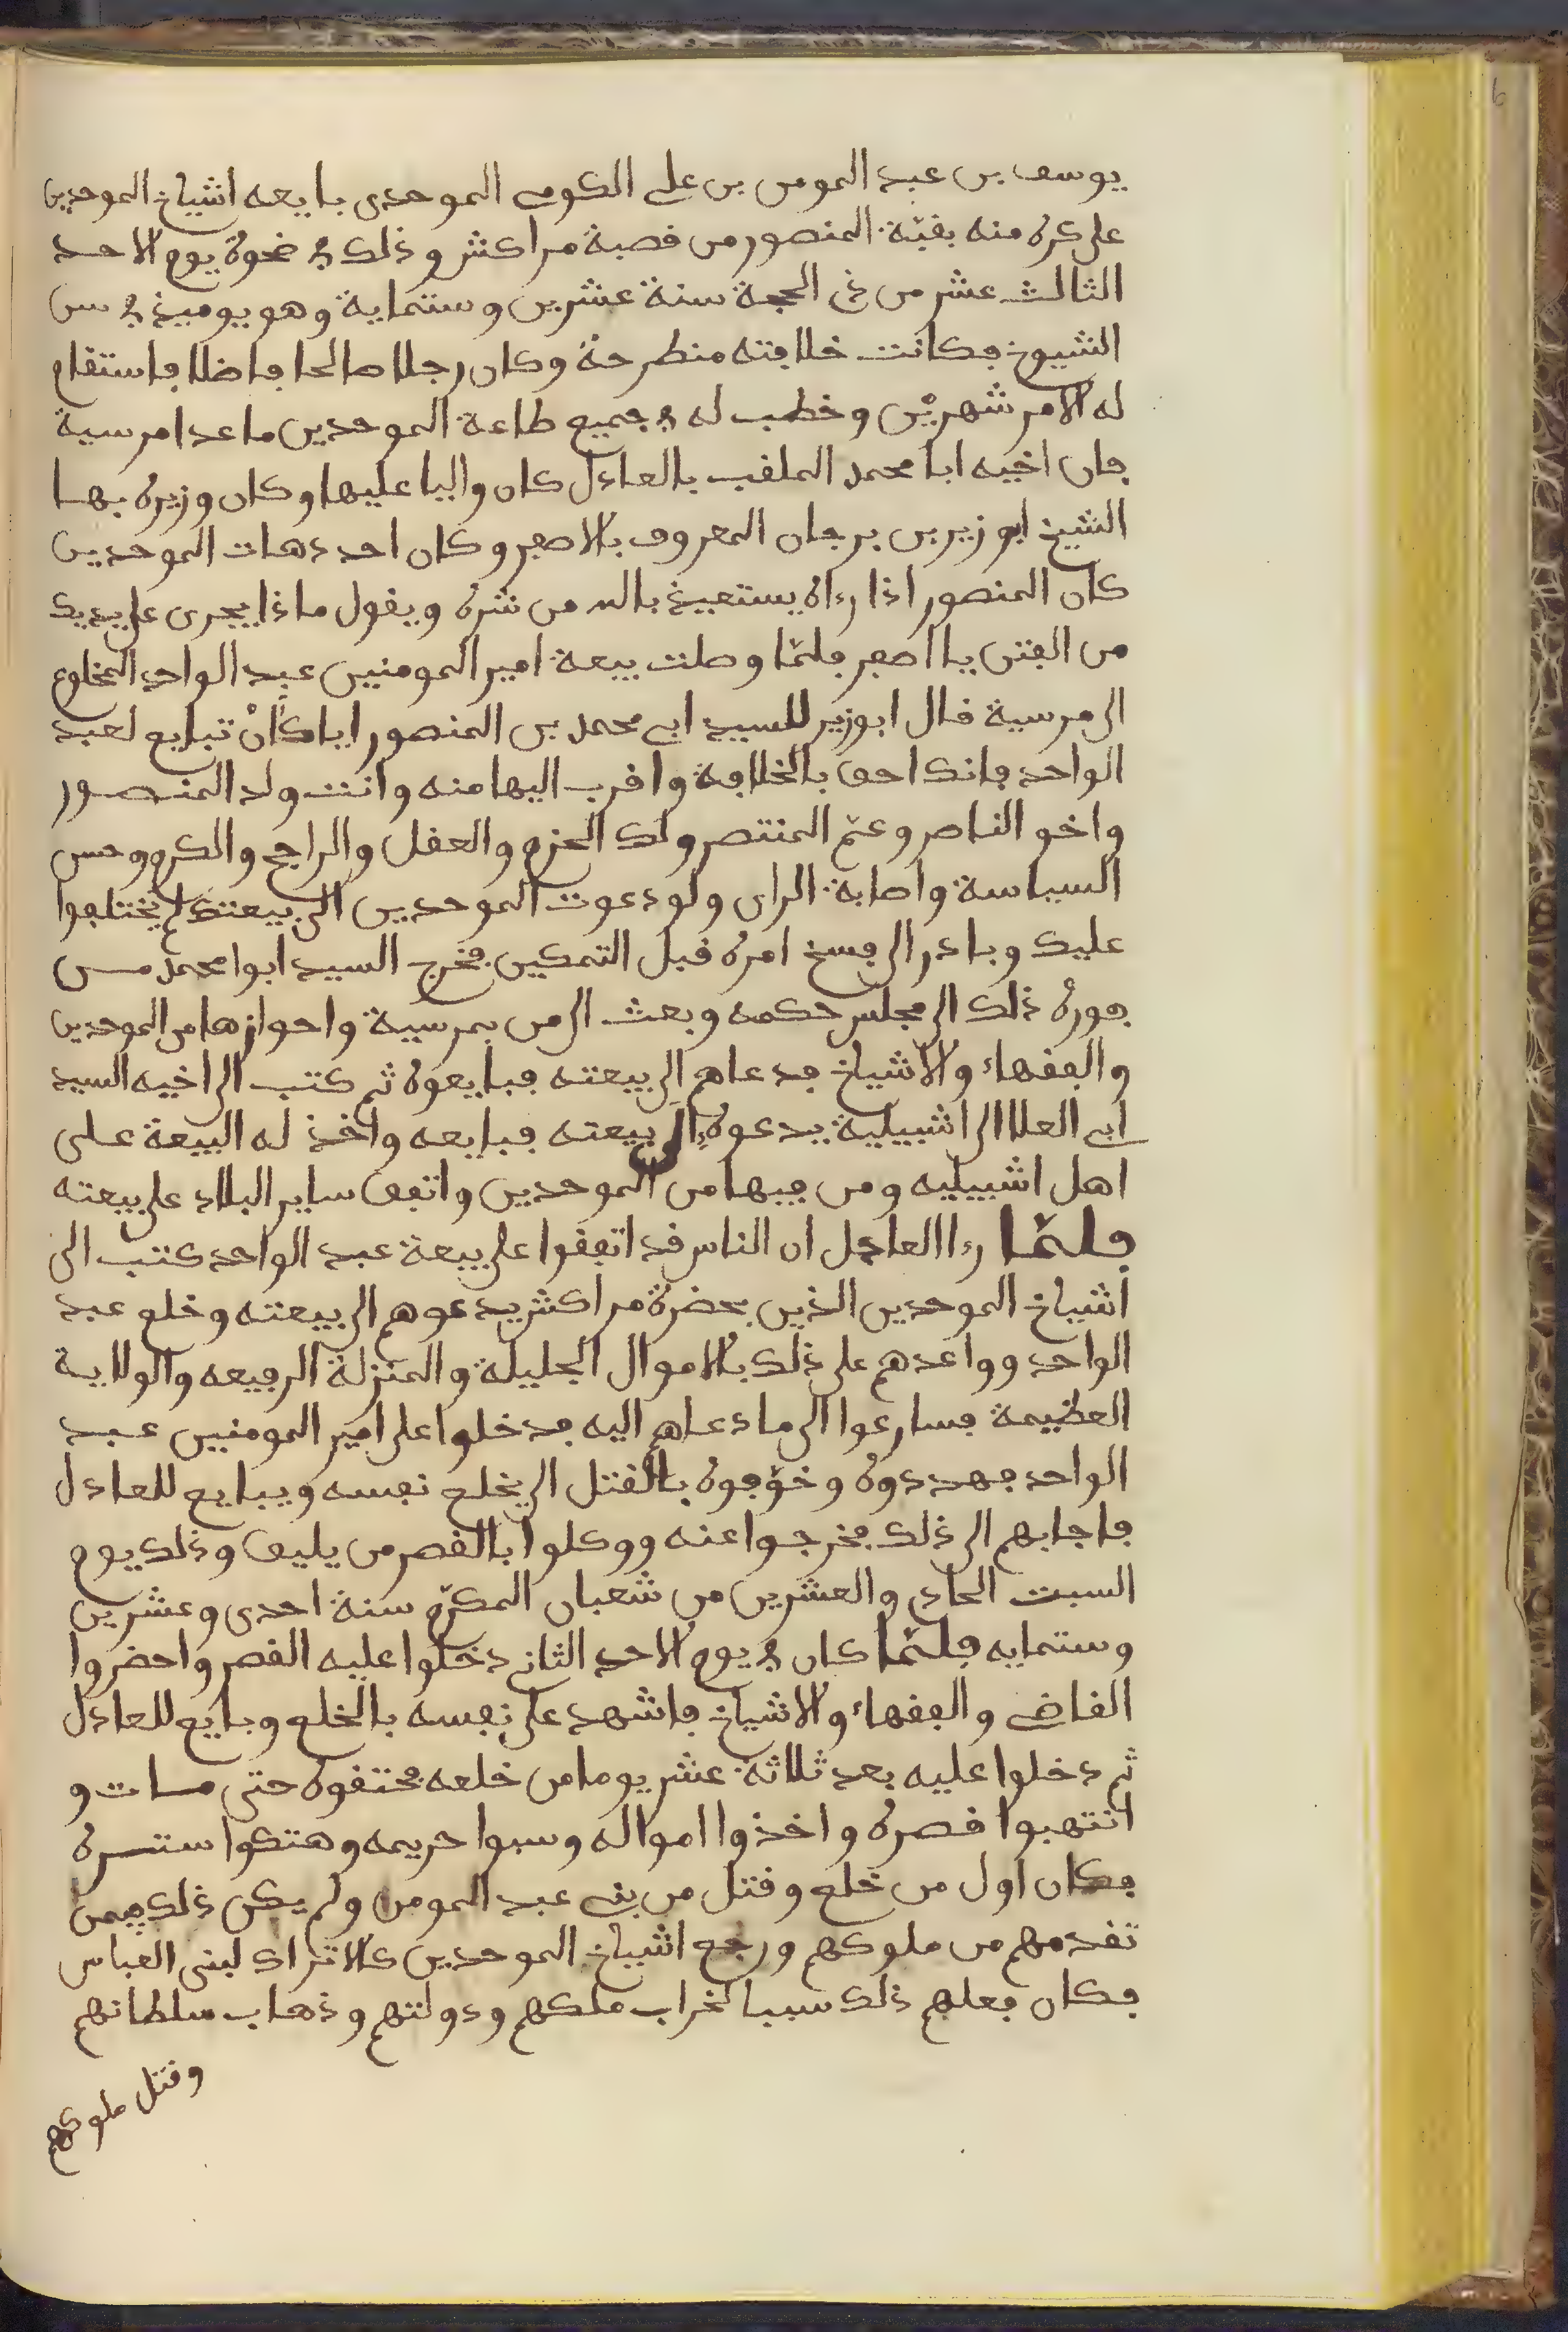 يوسف بن عبد المومن بن علي الكومي الموحدى بايعه اشياخ الموحدين
على كره منه بقبّة المنصور من قصبة مراكش وذلك في ضحوة يوم الاحد
الثالث عشر من ذي الحجة سنة عشرين وستماية وهو يوميذ في سن
الشيوخ فكانت خلافته منطرحة وكان رجلا صالحا فاضلا فاستقام
له الامر شهريْن وخطب له في جميع طاعة الموحدين ما عدا مرسية
فان اخيه ابا محمد الملقب بالعادل كان واليا عليها وكان وزيره بها
الشيخ ابو زيد بن برجان المعروف بالاصفر وكان احد دهات الموحدين
كان المنصور اذا رءاه يستعيذ بالله من شره ويقول ماذا يجرى على يديك
من الفتن يا اصفر فلمّا وصلت بيعة امير المومنين عبد الواحد المخلوع
الى مرسية قال ابو زيد للسيد ابي محمد بن المنصور اياك أنْ تبايع لعبد
الواحد فانك احق بالخلافة واقرب اليها منه وانت ولد المنصور
واخو الناصر وعمّ المنتصر ولك الحزم والعقل والراجح والكرم وحسن
السياسة واصابة الراى ولو دعوت الموحدين الى بيعتك لم يختلفوا
عليك وبادر الى فسخ امره قبل التمكين فخرج السيد ابوا محمد من
فوره ذلك الى مجلس حكمه وبعث الى من بمرسية واحوازها من الموحدين
والفقهاء والاشياخ فدعاهم الى بيعته فبايعوه ثم كتب الى اخيه السيد
ابي العلا الى اشبيلية يدعوه الى بيعته فبايعه واخذ له البيعة على
اهل اشبيليه ومن فيها من الموحدين واتفق ساير البلاد على بيعته
فلمّا رءا العادل ان الناس قد اتفقوا على بيعة عبد الواحد كتب الى
اشياخ الموحدين الذين بحضرة مراكش يدعوهم الى بيعته وخلع عبد
الواحد وواعدهم على ذلك بالاموال الجليلة والمنزلة الرفيعه والولاية
العظيمة فسارعوا الى ما دعاهم اليه فدخلوا على امير المومنين عبد
الواحد فهددوه وخوّفوه بالقتل الى يخلع نفسه ويبايع للعادل
فاجابهم الى ذلك فخرجوا عنه ووكلوا بالقصر من يليق وذلك يوم
السبت الحادي والعشرين من شعبان المكرّم سنة احدى وعشرين
وستمايه فلمّا كان في يوم الاحد الثاني دخلوا عليه القصر واحضروا
القاضي والفقهاء والاشياخ فاشهد على نفسه بالخلع وبايع للعادل
ثم دخلوا عليه بعد ثلاثة عشر يوما من خلعه فخنقوه حتى مات و
انتهبوا قصره واخذوا امواله وسبوا حريمه وهتكوا ستره
فكان اول من خلع وقتل من بني عبد المومن ولم يكن ذلك فيمن
تقدمهم من ملوكهم ورجع اشياخ الموحدين كالاتراك لبنى العباس
فكان فعلهم ذلك سببا لخراب ملكهم ودولتهم وذهاب سلطانهم
وقتل ملوكهم
6